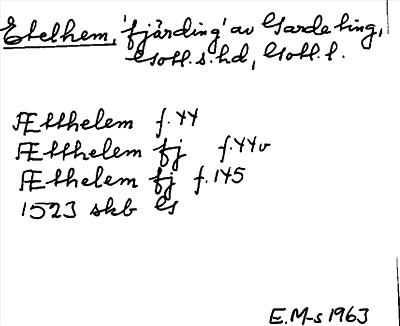 Etelhem, 'fjärding' av Garde ting,
Gotl. s. hd, Gotl. l.
Ætthelem f. 44
Ætthelem fj f. 44v
Æthelem fj f. 145
1523 skb G1
E.M-s 1963